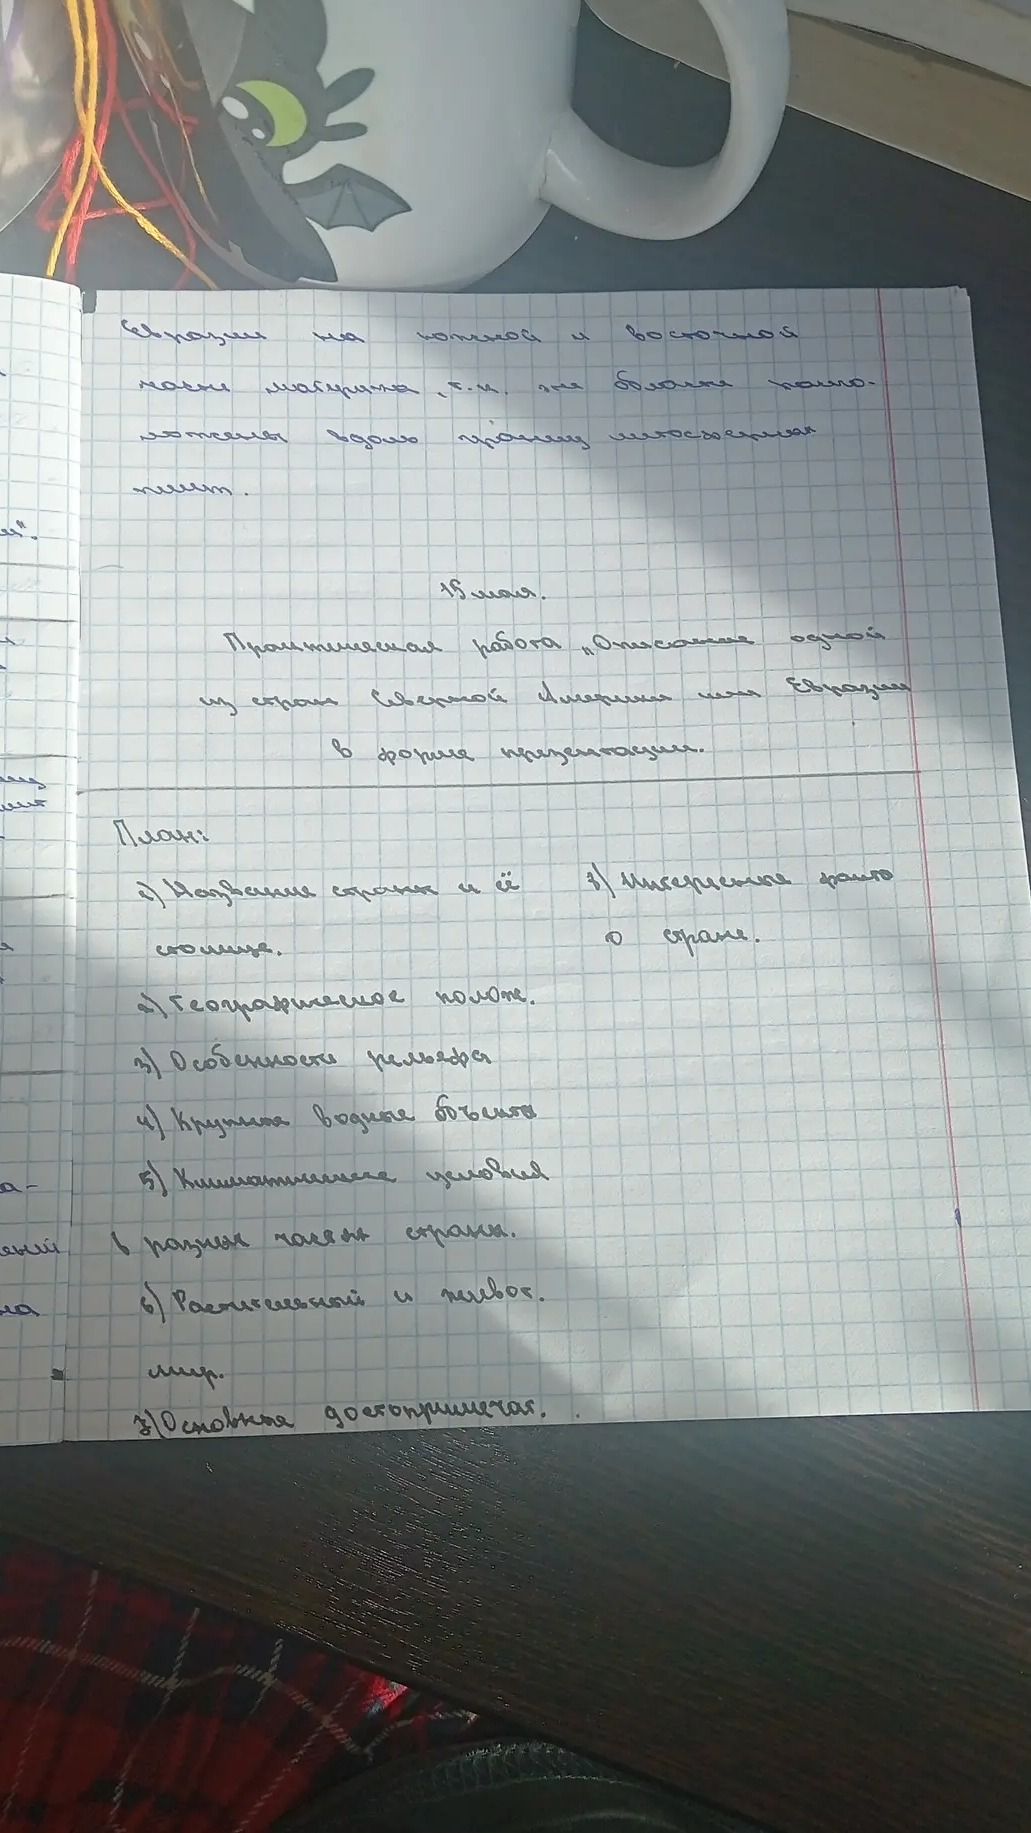 Евразии на южной и восточной
части материка, т.к. эти области распо-
ложены вдоль границ литосферных
плит.
15 мая.
Практическая работа „Описание одной
из стран Северной Америки или Евразии
в форме презентации.
План:
1) Название страны и её
столица.
2) Географическое полож.
3) Особенности рельефа
4) Крупные водные объекты
5) Климатические условия
в разных частях страны.
6) Растительный и живот.
мир.
7) Основные достопримечат.
8) Интересные факты
о стране.